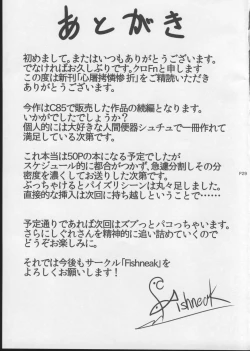 あとがき
初めまして。またはいつもありがとうございます。
でなければお久しぶりです。クロFnと申します
この度は新刊「心屠拷憐惨 折」をご精読いただき
ありがとうございます。
今作はC85で販売した作品の続編となります。
いかがでしたでしょうか？
個人的には大好きな人間便器シュチュで一冊作れて
満足している次第です。
これ本当は50Pの本になる予定でしたが
スケジュール的に都合がつかず、急遽分割しその分
密度を濃くしてお送りした次第です。
ぶっちゃけるとパイズリシーンは丸々足しました。
直接的な挿入は次回に持ち越しということで……
予定通りであれば次回はズブっとパコっちゃいます。
さらにしぐれさんを精神的に追い詰めていくので
どうぞお楽しみに。
それでは今後もサークル「Fishneak」を
よろしくお願いします！
Fishneak